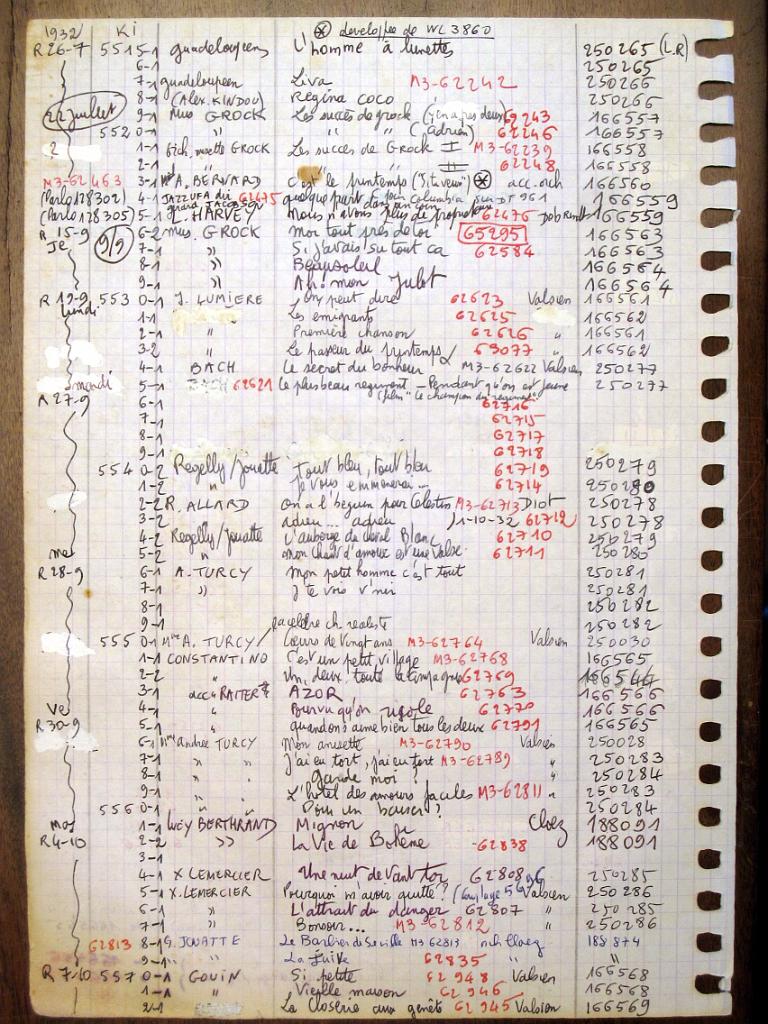 1932 Ki ⊛ developpee de WL 3860
R 26-7 551 5-1 guadeloupeens L'homme à lunettes 250265 (L.R)
6-1 250265
7-1 guadeloupeen Liva M3-62242 250266
8-1 (Alex. KINDOU) Regina coco 250266
22 juillet 9-1 Mus GROCK Les succès de grock 166557
552 0-1 " " " (adrien) 62246 166557
2 1-1 GROCK Les succès de GROCK I M3-62239 166558
2-1 II 62248 166558
M3-62463 3-1 A. BERVARD C'est le printemps ("Si tu veux") ⊛ acc. orch 166560
(Parlo 128302) 4-1 JAZZUFA dir 62475 quelque part 166559
(Parlo 128305) 5-1 L. HARVEY Nous n'avons plus de 62476 166559
R 15-9 6-2 mus GROCK Mon tout près de toi 65295 166563
Je 9/9 7-1 " Si j'avais su tout ca 62584 166563
8-1 " Beausoleil 166564
9-1 " Ah! mon Julot 166564
R 19-9 553 0-1 J. LUMIERE On peut dire 62623 Valsien 166561
lundi 1-1 Les emigrants 62625 166562
2-1 " Première chanson 62626 " 166561
3-2 " Le passeur du printemps 63077 " 166562
4-1 BACH Le secret du bonheur M3-62622 Valsien 250277
mardi 5-1 BACH 62621 Le plus beau regiment - Pendant qu'on est jeune 250277
R 27-9 6-1 (film "Le champion du regiment" 62716
7-1 62715
8-1 62717
9-1 62718
554 0-2 Regelly/jouatte Tout bleu, tout bleu 62719 250279
1-2 " Je vous emmenerai... 62714 250280
2-2 R. ALLARD On a l'beguin pour Celestin M3-62713 Diot 250278
3-2 adieu... adieu 1-10-32 62712 250278
4-2 Regelly/jouatte L'auberge du cheval Blanc 62710 250279
me 5-2 " Mon chant d'amour est une valse 62711 250280
R 28-9 6-1 A. TURCY Mon petit homme c'est tout 250281
7-1 " J'te vois v'nir 250281
8-1 250282
9-1 250282
555 0-1 Mme A. TURCY/ Coeurs de Vingt ans M3-62764 Valsien 250030
1-1 CONSTANTINO C'est un petit village M3-62768 166565
2-2 " Un, deux, toute la compagnie 62769 166566
3-1 acc RAITER AZOR 62763 166566
ve 4-1 " Pourvu qu'on rigole 62770 166566
R 30-9 5-1 " quand on s'aime bien tous les deux 62791 166565
6-1 Mme andree TURCY Mon anisette M3-62790 Valsien 250028
7-1 " " J'ai eu tort, j'ai eu tort M3-62789 " 250283
8-1 " " Garde moi? 250284
9-1 " " L'hotel des amours faciles M3-62811 " 250283
556 0-1 " " Pour un baiser? 250284
mar 1-1 Lucy BERTHRAND Mignon Cloez 188091
R 4-10 2-2 " La Vie de Bohème 62838 " 188091
3-1
4-1 X LEMERCIER Une nuit devant toi 62808 250285
5-1 X. LEMERCIER Pourquoi m'avoir quitté? Valsien 250286
6-1 " L'attrait du danger 62807 " 250285
7-1 " Bonsoir... M3-62812 " 250286
62813 8-1 G. JOUATTE Le Barbier de Seville M3 62813 orch Cloez 188874
9-1 " La Juive 62835 " "
R 7-10 557 0-1 GOUIN Si petite 62948 Valsien 166568
1-1 " Vieille maison 62946 " 166568
2-1 La Closerie aux genêts 62945 Valsien 166569